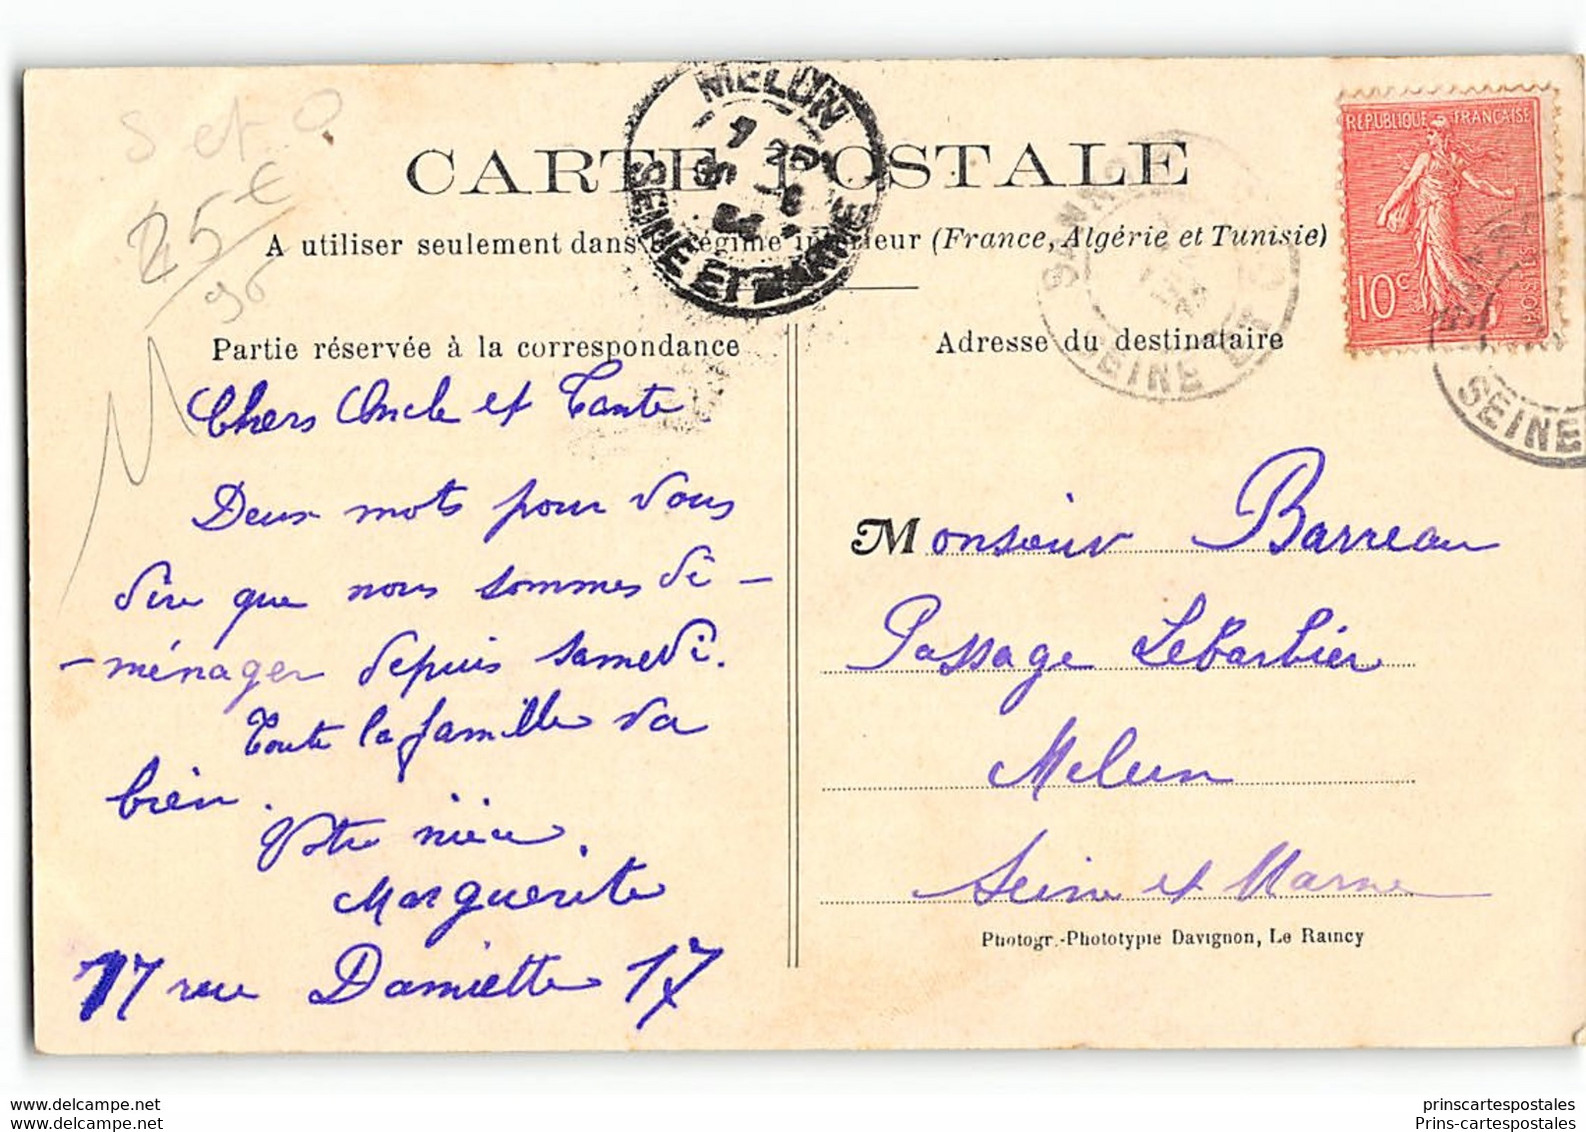 S et O
25€
95
CARTE POSTALE
A utiliser seulement dans le régime intérieur (France, Algérie et Tunisie)
MELUN
7 25
5 -8
04
SEINE ET MARNE
SANNOIS
SEINE ET O
REPUBLIQUE FRANÇAISE
10c
POSTES
SEINE
Partie réservée à la correspondance
Chers Oncle et Tante
Deux mots pour vous
dire que nous sommes dé-
-ménager depuis samedi.
Toute la famille va
bien.
Votre nièce.
Marguerite
17 rue Damiette 17
Adresse du destinataire
Monsieur Barreau
Passage Lebarbier
Melun
Seine et Marne
Photogr.-Phototypie Davignon, Le Raincy
www.delcampe.net
www.delcampe.net
prinscartespostales
Prins-cartespostales